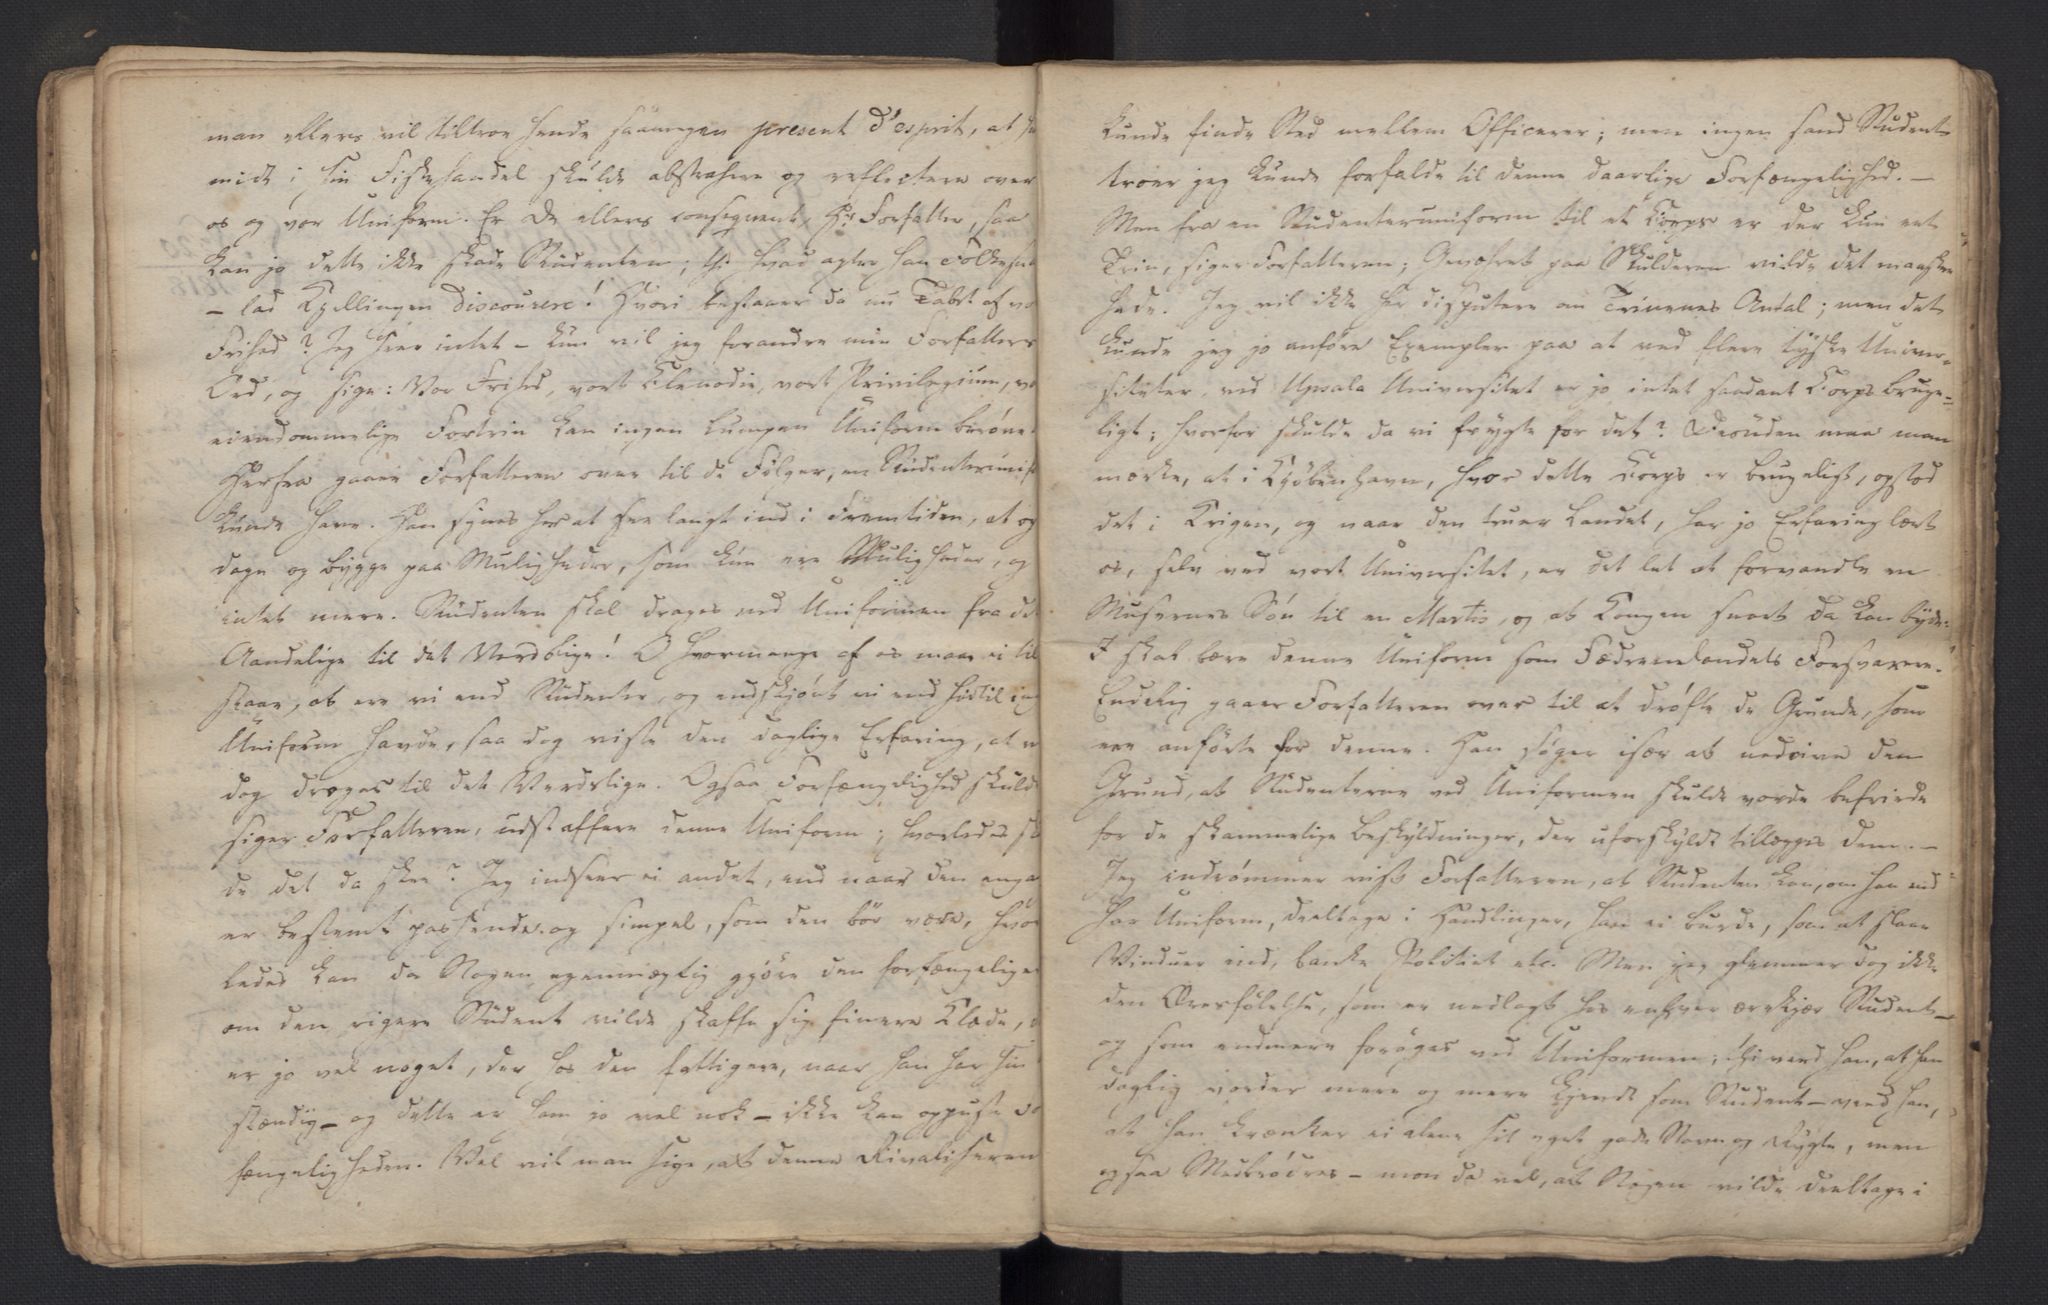 man ellers vil tiltroe hende saamegen present d'esprit, at
midt i sin Fiskehandel skulde abstrahere og reflectere over
os og vor Uniform. Er De ellers consequent, Hr Forfatter, saa
kan jo dette ikke skade Studenten; thi hvad agter han
– lad Kjellingen discourere! Hvori bestaaer da nu Tabet af
Frihed? Jeg seer intet – kun vil jeg forandre min Forfatters
Ord, og sige: Vor Frihed, vort Klenodie, vort Privilegium,
eiendommelige Fortrin kan ingen lumpen Uniform berøve.
Herfra gaaer Forfatteren over til de Følger, en Studenterunif
kunde have. Han synes her at see langt ind i Fremtiden, at og
dage og bygge paa Muligheder, som kun ere Muligheder, og
intet mere. Studenten skal drages ved Uniformen fra de
Aandelige til det Verdslige! O hvormange af os maae ei til
staae, at ere vi end Studenter, og endskjønt vi end hidtil in
Uniform havde, saa dog viste den daglige Erfaring, at
dog drages til det Verdslige. Ogsaa Forfængelighed skuld
siger Forfatteren, udstaffere denne Uniform; hvorledes
de det da skee? Jeg indseer ei andet, end naar den engang
er bestemt passende og simpel, som den bør være, hvor
ledes kan da Nogen egenmægtig gjøre den forfængelige
om den rigere Student vilde skaffe sig finere Klæde,
er jo vel noget, der hos den fattigere, naar han har sin
stændig – og dette er ham jo vel nok – ikke kan oppuste
fængeligheden. Vel vil man sige, at denne Rivaliseren
kunde finde Sted mellem Officerer; men ingen sand Student
troer jeg kunde forfalde til denne daarlige Forfængelighed. –
Men fra en Studenteruniform til et Korps er der kun eet
Trin, siger Forfatteren; Geværet paa Skulderen vilde det maaskee
hede. Jeg vil ikke her disputere om Trinenes Antal; men det
kunde jeg jo anføre Exempler paa at ved flere tydske Univer-
siteter, ved Upsala Universitet er jo intet saadant Korps bruge-
ligt; hvorfor skulde da vi frygte for det? Desuden maa man
mærke, at i Kjøbenhavn, hvor dette Korps er brugeligt, opstod
det i Krigen, og naar den truer Landet, har jo Erfaring lært
os, selv ved vort Universitet, er det let at forvandle en
Musernes Søn til en Martis, og at Kongen snart da kan byde:
I skal bære denne Uniform som Fædrenelandets Forsvarere.
Endelig gaaer Forfatteren over til at drøfte de Grunde, som
ere anførte for denne. Han søger især at nedrive den
Grund, at Studenterne ved Uniformen skulde vorde befriede
for de skammelige Beskyldninger, der uforskyldt tillægges dem. –
Jeg indrømmer vist Forfatteren, at Studenten kan, om han end
har Uniform, deeltage i Handlinger, han ei burde, som at slaae
Vinduer ind, banke Politiet etc. Men jeg glemmer dog ikke
den Æresfølelse, som er nedlagt hos enhver ærekjær Student –
og som endmere forøges ved Uniformen; thi veed han, at han
daglig vorder mere og mere kjendt som Student – veed han,
at han krænker ei alene sit eget gode Navn og Rygte, men
ogsaa Medbrødres – mon da vel, at Nogen vilde deeltage i